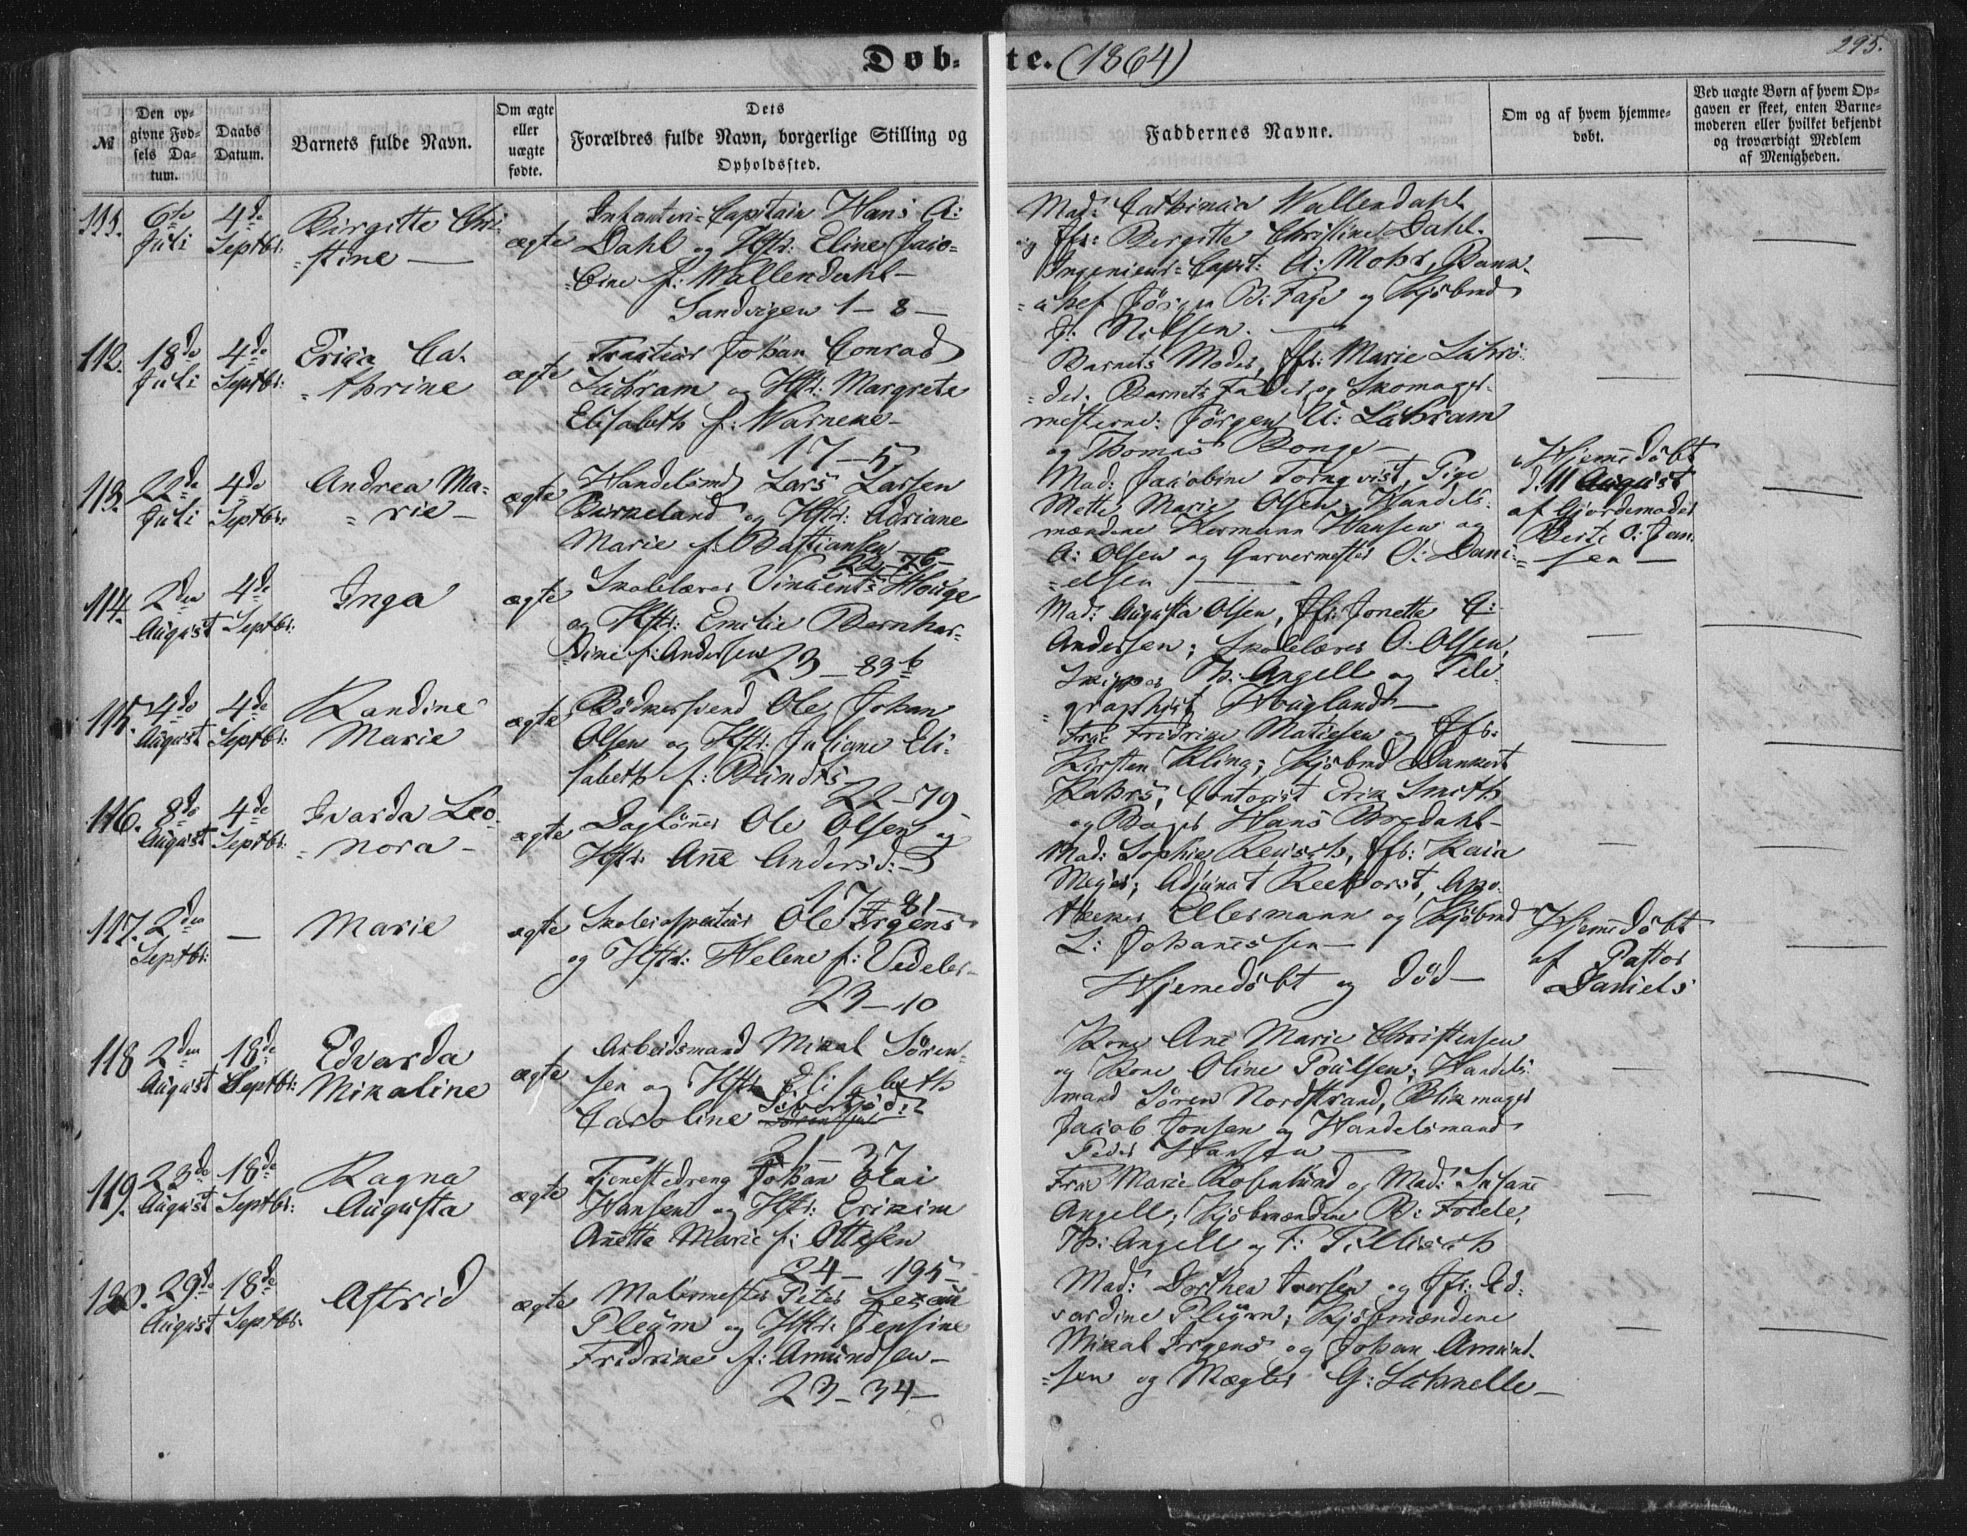 Døb-te. (1864)
295.
№
Den op-
givne Fød-
sels Da-
tum.
Daabs
Datum.
Barnets fulde Navn.
Om ægte
eller
uægte
fødte.
Dets
Forældres fulde Navn, borgerlige Stilling og
Opholdssted.
Faddernes Navne.
Om og af hvem hjemme-
døbt.
Ved uægte Børn af hvem Op-
gaven er skeet, enten Barne-
moderen eller hvilket bekjendt
og troværdigt Medlem
af Menigheden.
111.
6te
Juli
4de
Septbr:
Birgitte Chri-
stine —
ægte
Infanteri-Capitain Hans A:
Dahl og Hstr: Eline Jaco-
bine f: Wallendahl —
Sandvigen 1 – 8 —
Mad: Cathinca Wallendahl
og Jfr: Bergitte Christine Dahl.
Ingenieur-Capt: A: Mohr, Bank-
chef Jørgen B: Faye og Kjøbmd
J: Nilsen. —
112.
18de
Juli
4de
Septbr:
Erica Ca-
thrine
ægte
Tracteur Johan Conrad
Lahram og Hstr: Margrete
Elisabeth f: Warneke —
17 – 5
Barnets Moder, Jfr: Marie Lühr-
der. Barnets Fader og Skomager-
mesterne: Jørgen U: Lahram
og Thomas Bonge —
113.
22de
Juli
4de
Septbr:
Andrea Ma-
rie —
ægte
Handelsmd Lars Larsen
Birkeland og Hstr: Adriane
Marie f: Bastiansen
22 – 76 —
Mad: Jacobine Tornqvist, Pige
Mette Marie Olsen, Handels-
mændene Hermann Hansen og
A: Olsen og Garvermester O: Dani-
elsen —
Hjemedøbt
d: 11 August
af Gjordemoder
Berte O: Jen-
sen —
114.
2den
August
4de
Septbr:
Inga
ægte
Skolelærer Vincents Houge
og Hstr: Emilie Bernhar-
dine f: Andersen
23 – 89 b
Mad: Augusta Olsen, Jfr: Jonette C:
Andersen; Skolelærer O: Olsen,
Skipper Th: Angell og Tele-
graphist Houglandt —
115.
4de
August
4de
Septbr:
Randine
Marie
ægte
Bødkersvend Ole Johan
Olsen og Hstr: Juliane Eli-
sabeth f: Bündts
22 – 79 —
Frue Fridrike Matiesen og Jfr:
Kirsten Kling; Kjøbmd Dankert
Kahrs, Contorist Erik Smith
og Bager Hans Bredahl —
116.
8de
August
4de
Septbr:
Ivarda Leo-
nora —
ægte
Dagløner Ole Olsen og
Hstr: Ane Andersd: —
17 – 81 —
Mad: Sophie Reusch, Jfr: Kaia
Meyer; Adjunct Reehorst, Apo-
theker Ellermann og Kjøbmd
L: Johannessen —
117.
2den
Septbr:
—
Marie
ægte
Skoleinspecteur Ole Irgens
og Hstr: Helene f: Vedeler —
23 – 10
Hjemedøbt og død —
Hjemedøbt
af Pastor
Daniels
118
2den
August
18de
Septbr:
Edvarda
Mikaline
ægte
Arbeidsmand Mikal Søren-
sen og Hstr: Elisabeth
Caroline Sivertsd:
21 – 37
Kone Ane Marie Christensen
og Kone Oline Poulsen; Handels-
mand Søren Nordstrand, Blikmager
Jacob Jonsen og Handelsmand
Peder Hansen —
119.
23de
August
18de
Septbr:
Ragna
Augusta
ægte
Tjenestedreng Johan Olai
Hansen og Hstr: Erikim
Anette Marie f: Ottesen
24 – 195 —
Frue Marie Rosenlund og Mad: Susane
Angell; Kjøbmændene B: Friele,
Th: Angell og F: Tillisch
120.
29de
August
18de
Septbr:
Astrid
ægte
Malermester Peter Lexau
Pleym og Hstr: Jensine
Fridrike f: Amundsen —
23 – 34 —
Mad: Dorthea Iversen og Jfr: Ed-
vardine Pleym; Kjøbmændene
Mikal Irgens og Johan Amund-
sen og Mægler G: Schnelle —